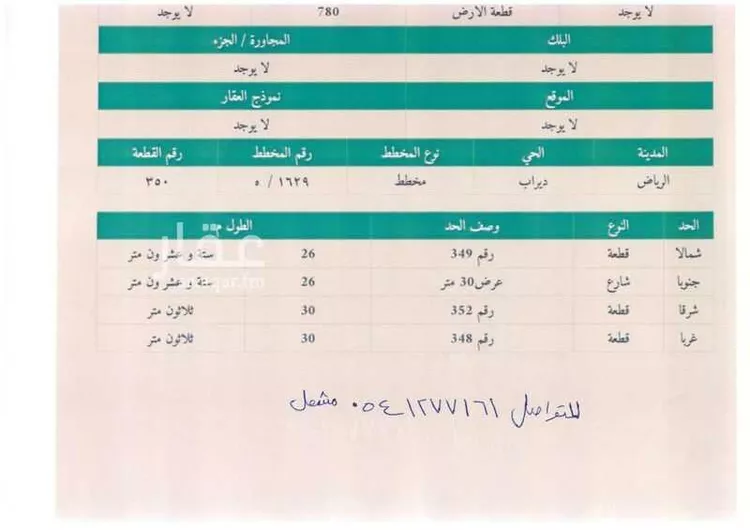 لا يوجد قطعة الارض 780 لا يوجد
البلك المجاورة / الجزء
لا يوجد لا يوجد
الموقع نموذج العقار
لا يوجد لا يوجد
المدينة الحي نوع المخطط رقم المخطط رقم القطعة
الرياض ديراب مخطط ١٦٢٩ / ٥ ٣٥٠
الحد النوع وصف الحد الطول م
شمالا قطعة رقم 349 26 ستة و عشرون متر
جنوبا شارع عرض30 متر 26 ستة و عشرون متر
شرقا قطعة رقم 352 30 ثلاثون متر
غربا قطعة رقم 348 30 ثلاثون متر
عقار
للتواصل ٠٥٤١٢٧٧١٦١ مشعل